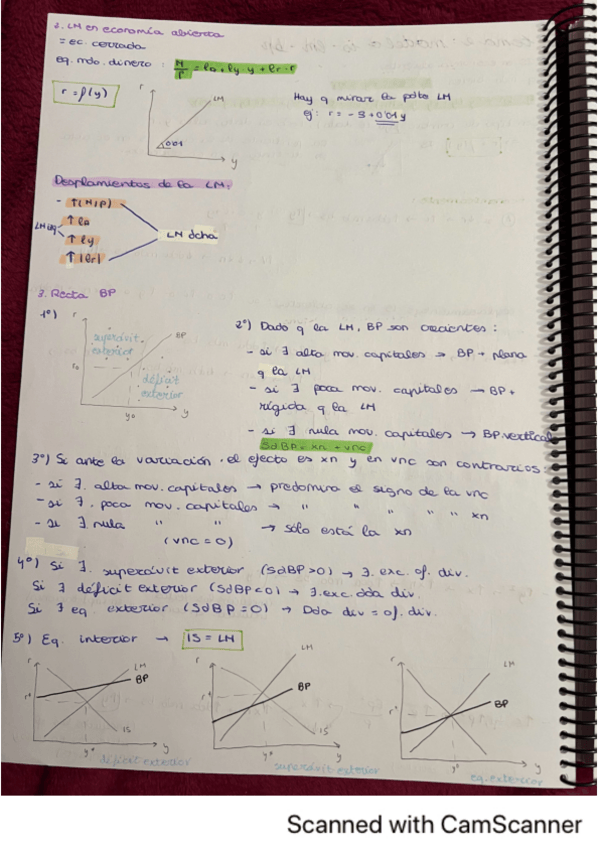 2. LM en economía abierta
= ec. cerrada
eq. mdo. dinero : M/P = l0 + ly · y + lr · r
r = f(y)
Hay q mirar la pdte LM
ej: r = -3 + 0'01 y
r
LM
0'01
y
Desplamientos de la LM:
- ↑(M/P)
↑ l0
↑ ly
↑ |lr|
LM dcha
3. Recta BP
1º)
r
superávit exterior
BP
r0
déficit exterior
y0
y
2º) Dado q la LM, BP son crecientes :
- si ∃ alta mov. capitales → BP + plana
q la LM
- si ∃ poca mov. capitales → BP +
rígida q la LM
- si ∃ nula mov. capitales → BP vertical
SdBP = xn + vnc
3º) Si ante la variación el efecto es xn y en vnc son contrarios:
- si ∃. alta mov. capitales → predomina el signo de la vnc
- si ∃. poca mov. capitales → " " " " " xn
- si ∃ nula " " → sólo está la xn
(vnc = 0)
4º) Si ∃. superávit exterior (SdBP>0) → ∃. exc. of. div.
Si ∃ déficit exterior (SdBP<0) → ∃. exc. dda div.
Si ∃ eq. exterior (SdBP=0) → Dda div = of. div.
5º) Eq. interior → IS = LM
r
LM
BP
rº
IS
yº
y
déficit exterior
r
LM
BP
rº
IS
yº
y
superávit exterior
r
LM
BP
rº
yº
y
eq. exterior
Scanned with CamScanner